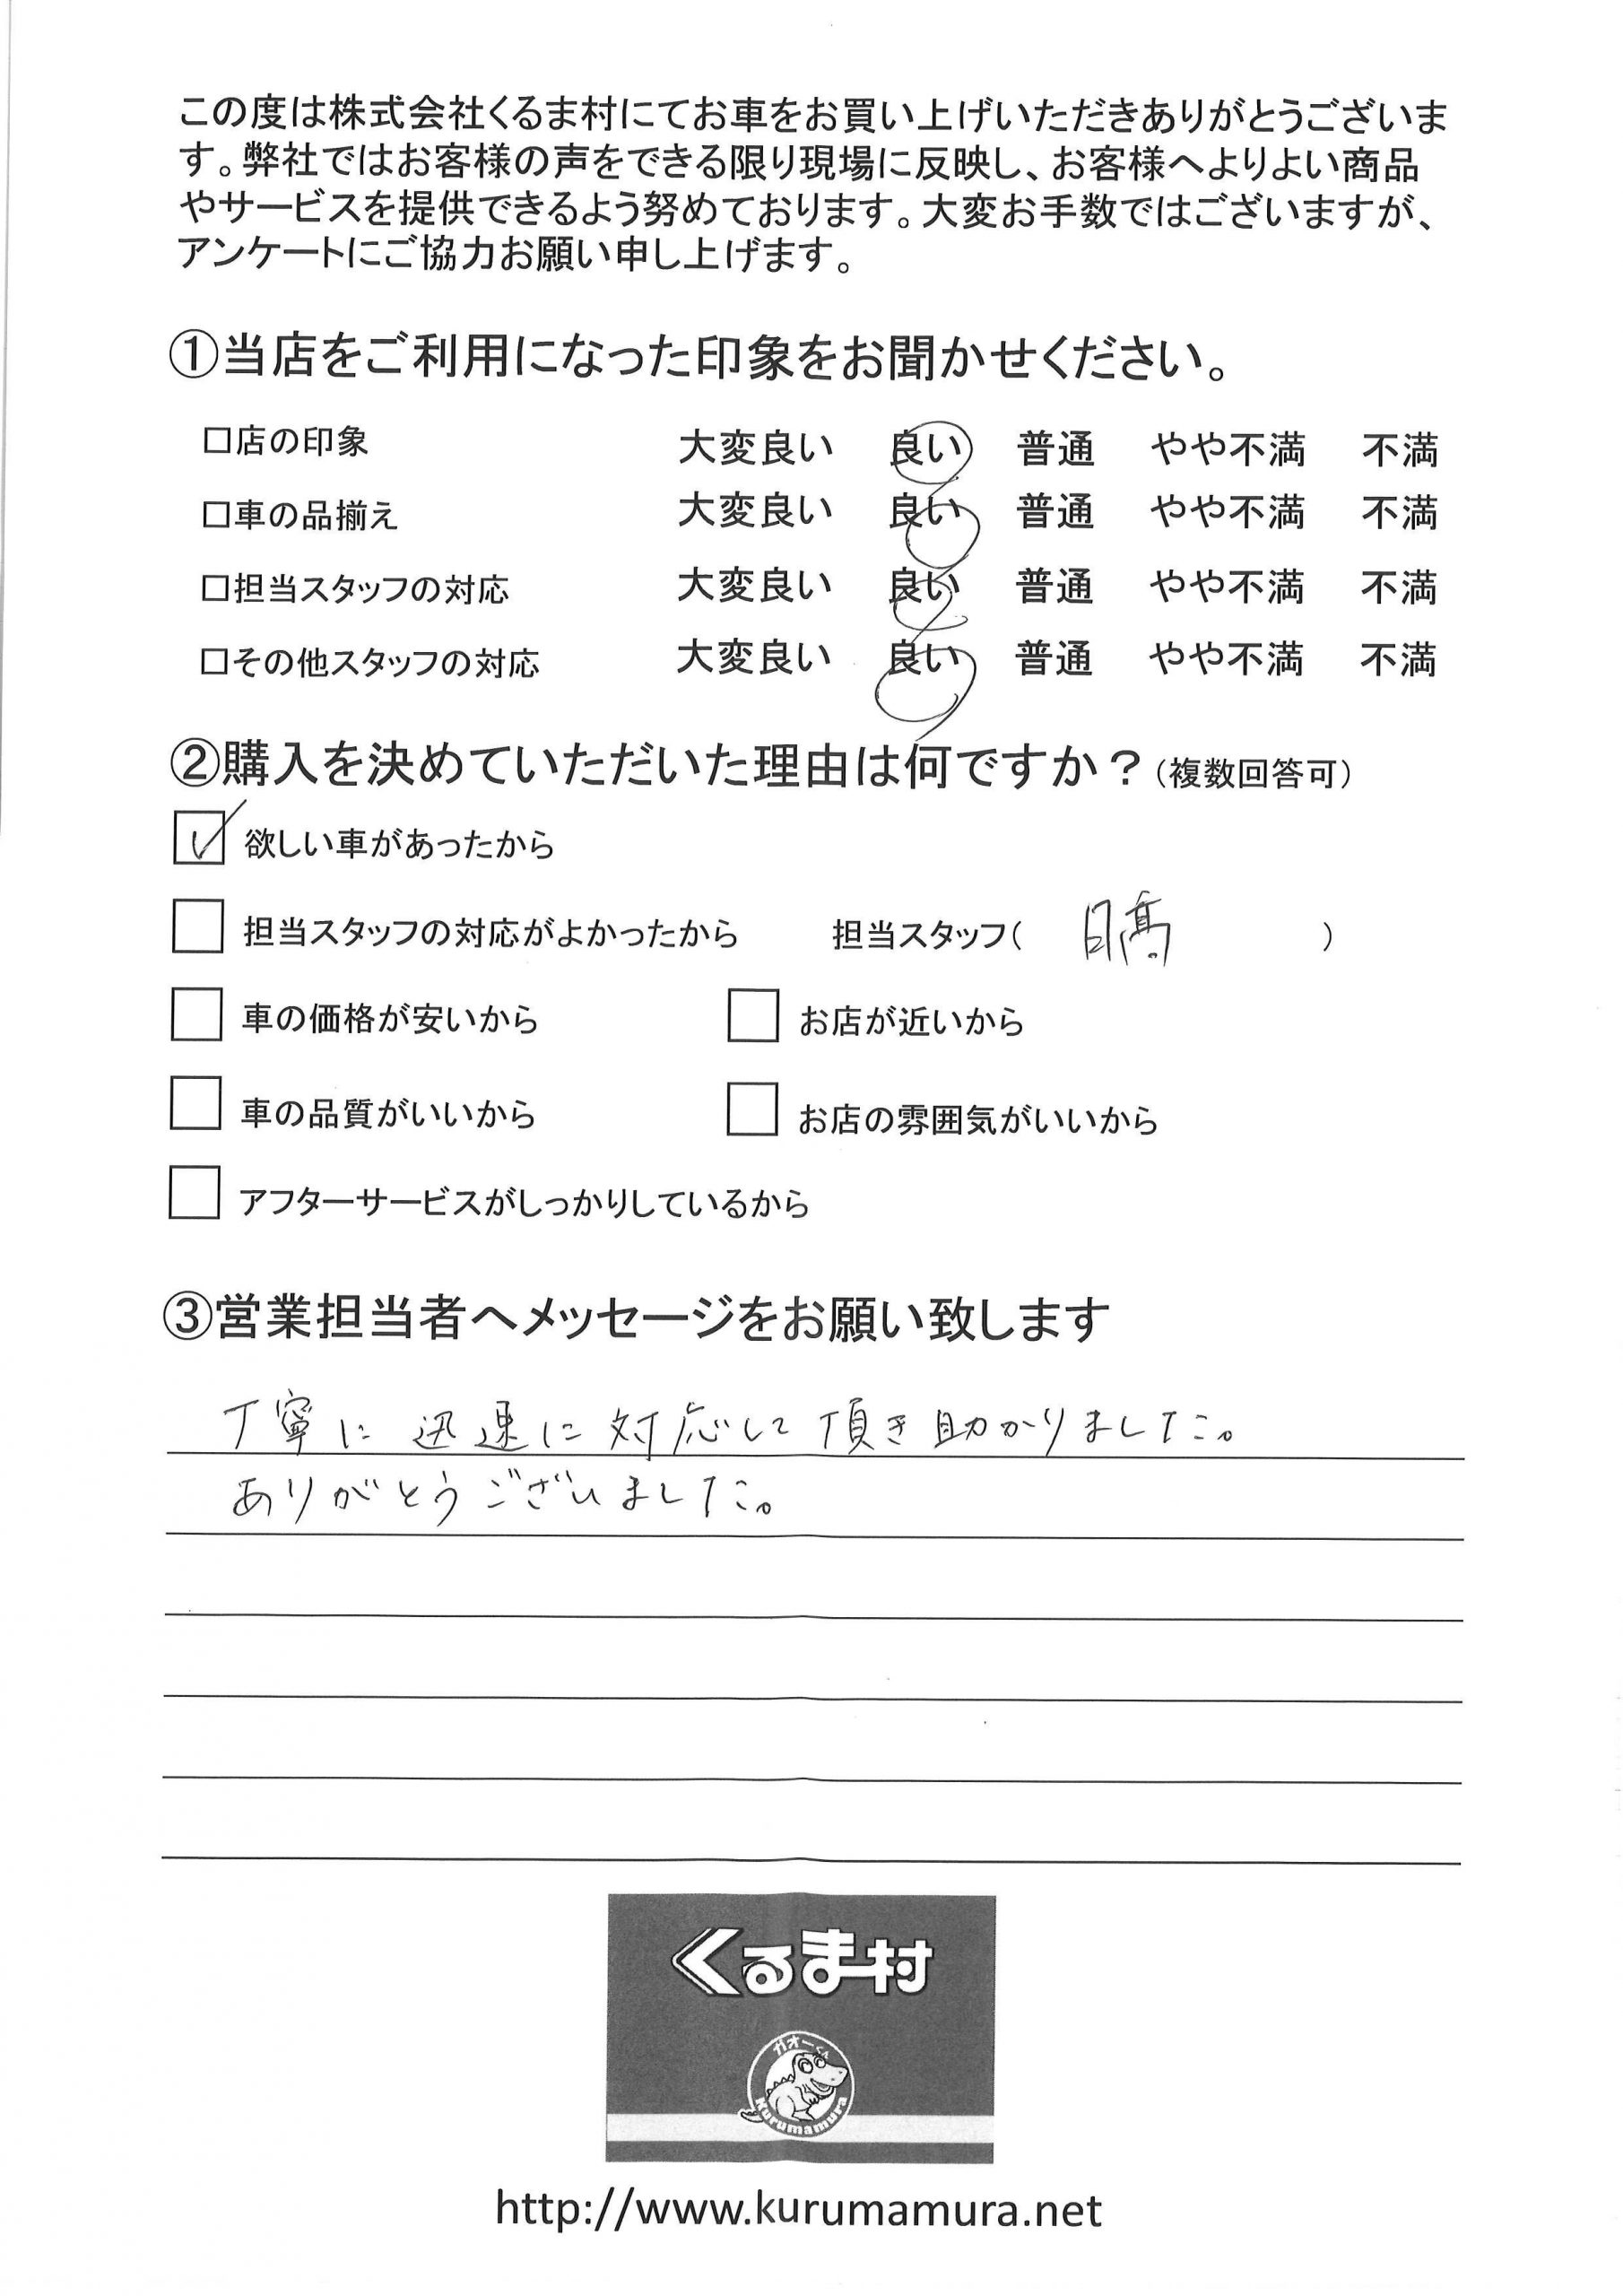 この度は株式会社くるま村にてお車をお買い上げいただきありがとうございま
す。弊社ではお客様の声をできる限り現場に反映し、お客様へよりよい商品
やサービスを提供できるよう努めております。大変お手数ではございますが、
アンケートにご協力お願い申し上げます。
①当店をご利用になった印象をお聞かせください。
□店の印象 大変良い 良い 普通 やや不満 不満
□車の品揃え 大変良い 良い 普通 やや不満 不満
□担当スタッフの対応 大変良い 良い 普通 やや不満 不満
□その他スタッフの対応 大変良い 良い 普通 やや不満 不満
②購入を決めていただいた理由は何ですか？（複数回答可）
欲しい車があったから
担当スタッフの対応がよかったから 担当スタッフ（ 日髙 ）
車の価格が安いから お店が近いから
車の品質がいいから お店の雰囲気がいいから
アフターサービスがしっかりしているから
③営業担当者へメッセージをお願い致します
丁寧に迅速に対応して頂き助かりました。
ありがとうございました。
くるま村
ガオーくん
Kurumamura
http://www.kurumamura.net